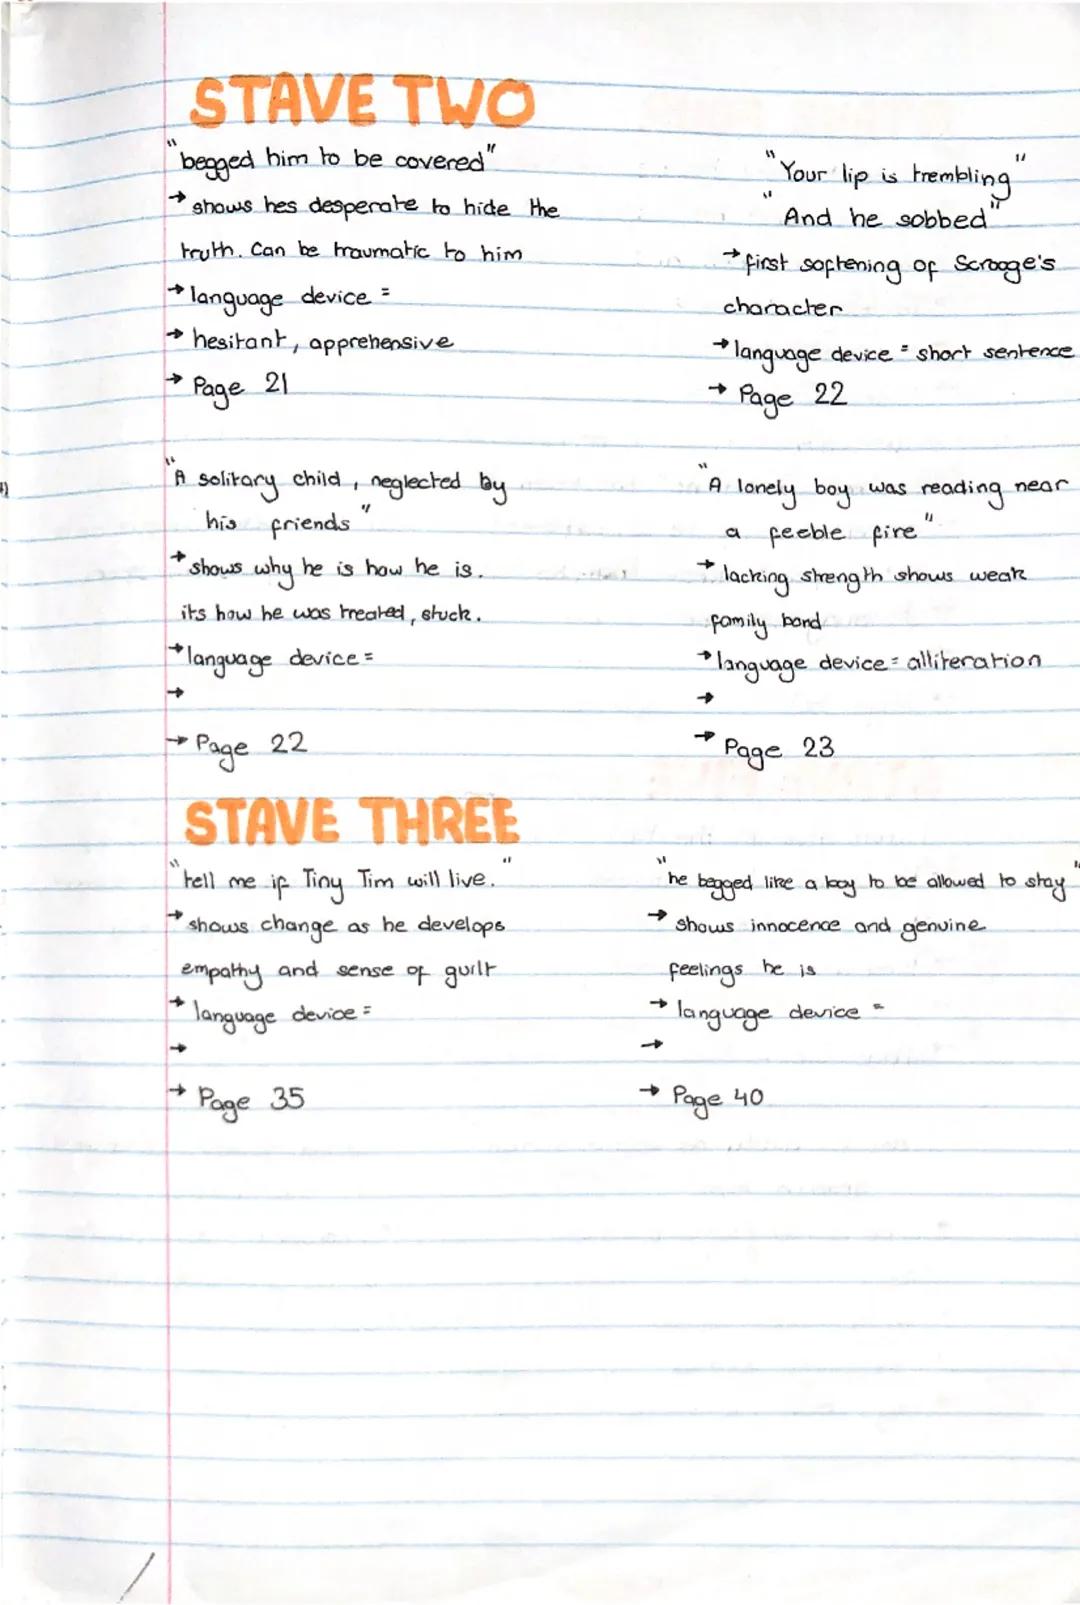 STAVE TWO
"begged him to be covered"
→ shows hes desperate to hide the
truth. Can be traumatic to him
→ language device =
→ hesitant, apprehensive
→ Page 21
"Your lip is trembling"
"And he sobbed"
→ first softening of Scrooge's
character
→ language device = short sentence
→ Page 22
"A solitary child, neglected by
his friends"
→ shows why he is how he is.
its how he was treated, stuck.
→ language device =
→
→ Page 22
"A lonely boy was reading near
a feeble fire"
→ lacking strength shows weak
family bond
→ language device = alliteration
→
→ Page 23
STAVE THREE
"tell me if Tiny Tim will live."
→ shows change as he develops
empathy and sense of guilt
→ language device =
→
→ Page 35
"he begged like a boy to be allowed to stay"
→ shows innocence and genuine
feelings he is
→ language device =
→
→ Page 40